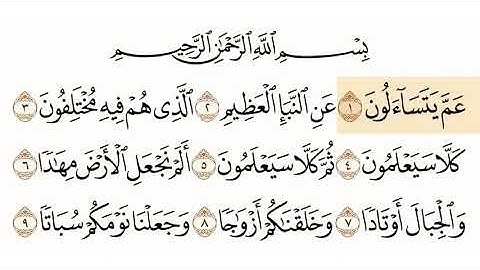 بِسْمِ اللَّهِ الرَّحْمَٰنِ الرَّحِيمِ
عَمَّ يَتَسَآءَلُونَ ١ عَنِ النَّبَإِ الْعَظِيمِ ٢ الَّذِي هُمْ فِيهِ مُخْتَلِفُونَ ٣
كَلَّا سَيَعْلَمُونَ ٤ ثُمَّ كَلَّا سَيَعْلَمُونَ ٥ أَلَمْ نَجْعَلِ الْأَرْضَ مِهَادًا ٦
وَالْجِبَالَ أَوْتَادًا ٧ وَخَلَقْنَاكُمْ أَزْوَاجًا ٨ وَجَعَلْنَا نَوْمَكُمْ سُبَاتًا ٩